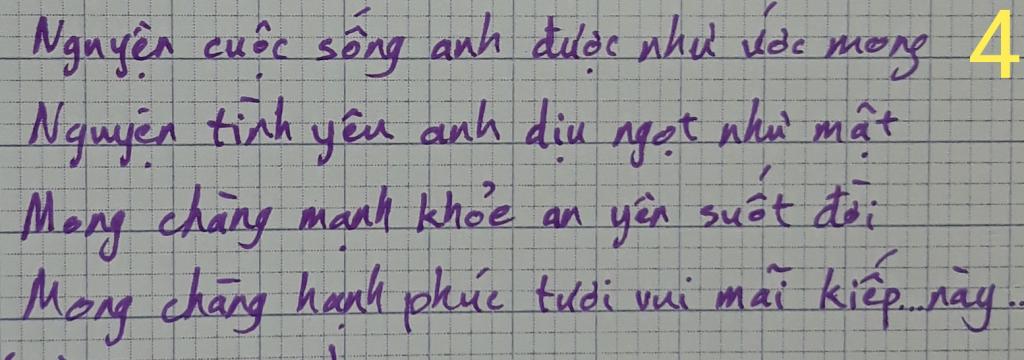 Nguyện cuộc sống anh được như ước mong 4
Nguyện tình yêu anh dịu ngọt như mật
Mong chàng mạnh khỏe an yên suốt đời
Mong chàng hạnh phúc tươi vui mãi kiếp...này..